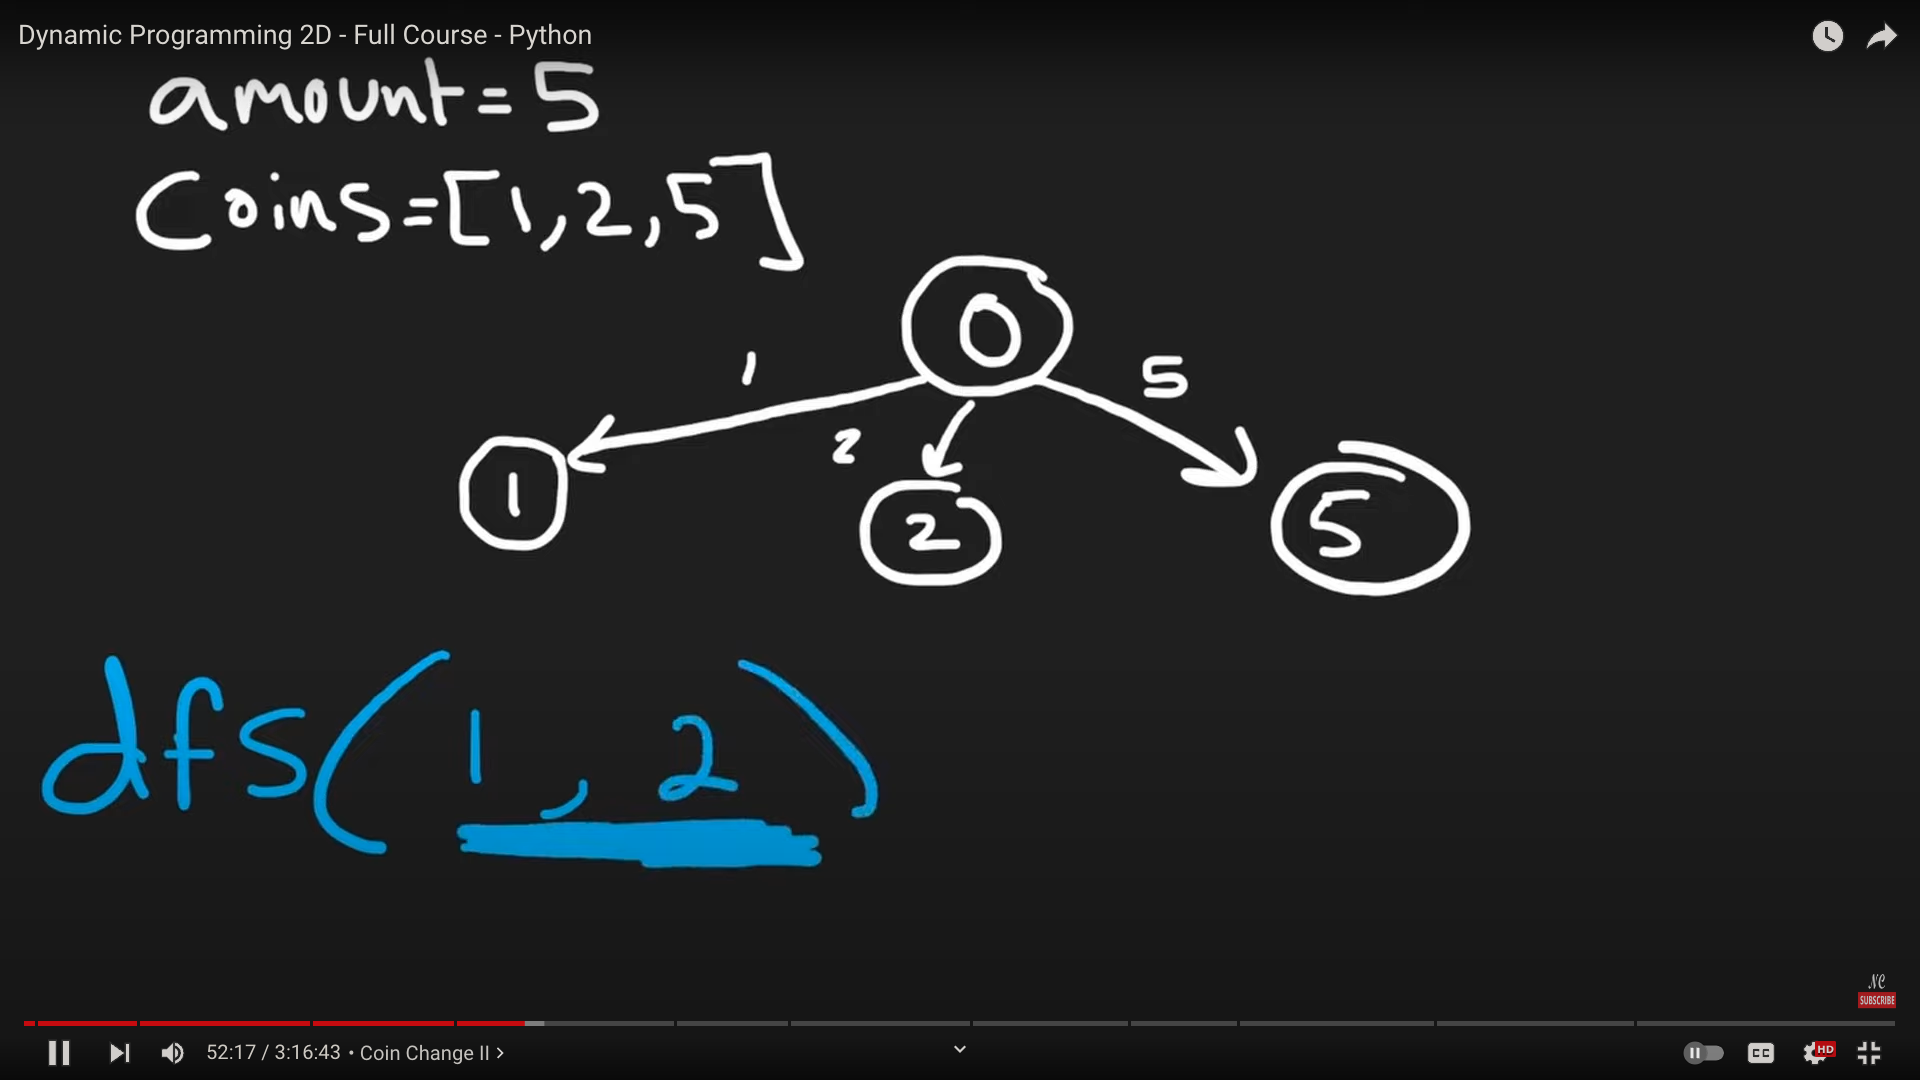 Dynamic Programming 2D - Full Course - Python
amount=5
Coins=[1,2,5]
0
1
5
2
1
2
5
dfs(1,2)
NC
SUBSCRIBE
52:17 / 3:16:43 • Coin Change II >
CC
HD